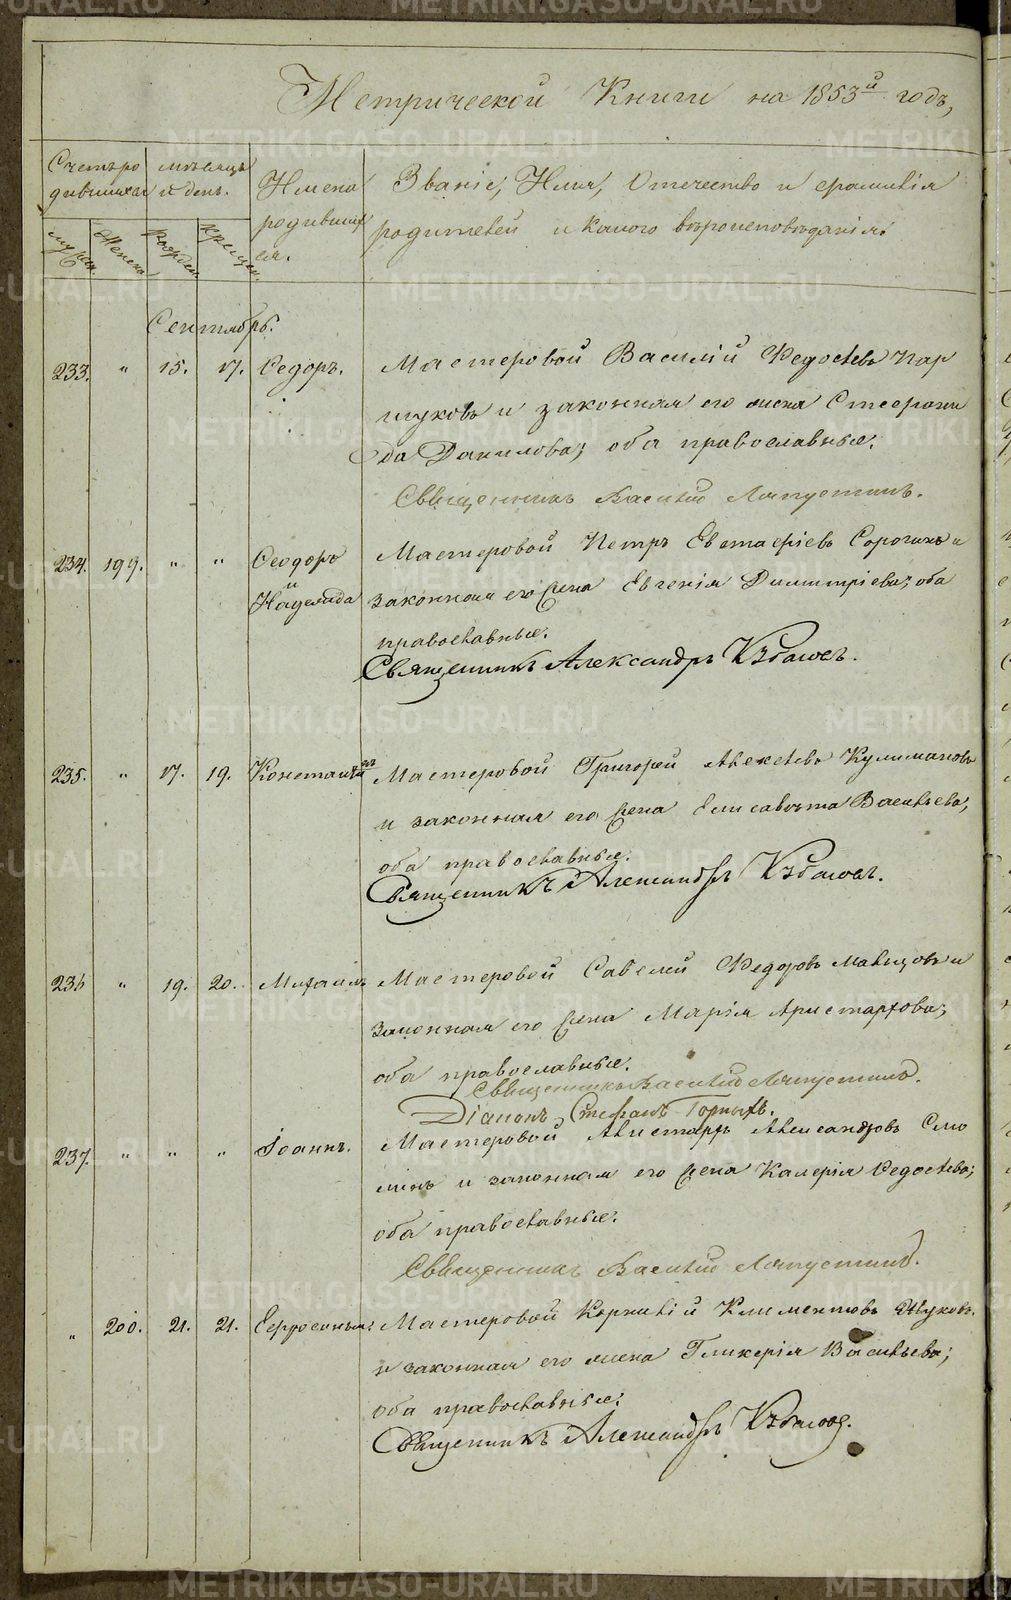 Метрической Книги на 1853й годъ,
Счетъ ро
дившихся
мѣсяцъ
и день.
Имена
родивших
ся.
Званіе, Имя, Отечество и фамилія
родителей и какого вѣроисповѣданія.
мужеск.
Женска
рожден.
крещен.
Сентябрь.
233. " 15. 17. Ѳедоръ. Мастеровой Василій Ѳедосѣевъ Пар
шуковъ и законная его жена Стефани
да Данилова; оба православные.
Священникъ Василій Ляпустинъ.
234. 199. " " Ѳеодоръ Мастеровой Петръ Евстафіевъ Сорогинъ и
и
Надежда законная его жена Евгенія Димитріева; оба
православные.
Священникъ Александръ
235. " 17. 19. Константинъ Мастеровой Григорей Алексѣевъ Кулимановъ
и законная его жена Елисавѣта Васильева,
оба православные.
Священникъ Александръ
236 " 19. 20. Михаилъ Мастеровой Савелей Ѳедоровъ Мальцовъ и
законная его жена Марія Аристархова;
оба православные.
Священникъ Василій Ляпустинъ.
Діаконъ Стефанъ Горныхъ.
237. " " " Іоаннъ. Мастеровой Александровъ Смо
линъ и законная его жена Калерія Ѳедосѣева;
оба православные.
Священникъ Василій Ляпустинъ.
" 200. 21. 21. Ефросинья: Мастеровой Корнилій Климентовъ
и законная его жена Гликерія Васильева;
оба православные.
Священникъ Александръ
METRIKI.GASO-URAL.RU